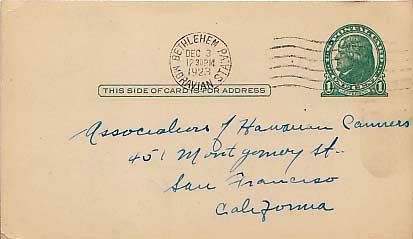 BETHLEHEM PA.
DEC 3
12 30 PM
1923
MORAVIAN STA.
U.S. POSTAGE
1 1
THIS SIDE OF CARD IS FOR ADDRESS
Association of Hawaiian Canners
451 Montgomery St.
San Francisco
California